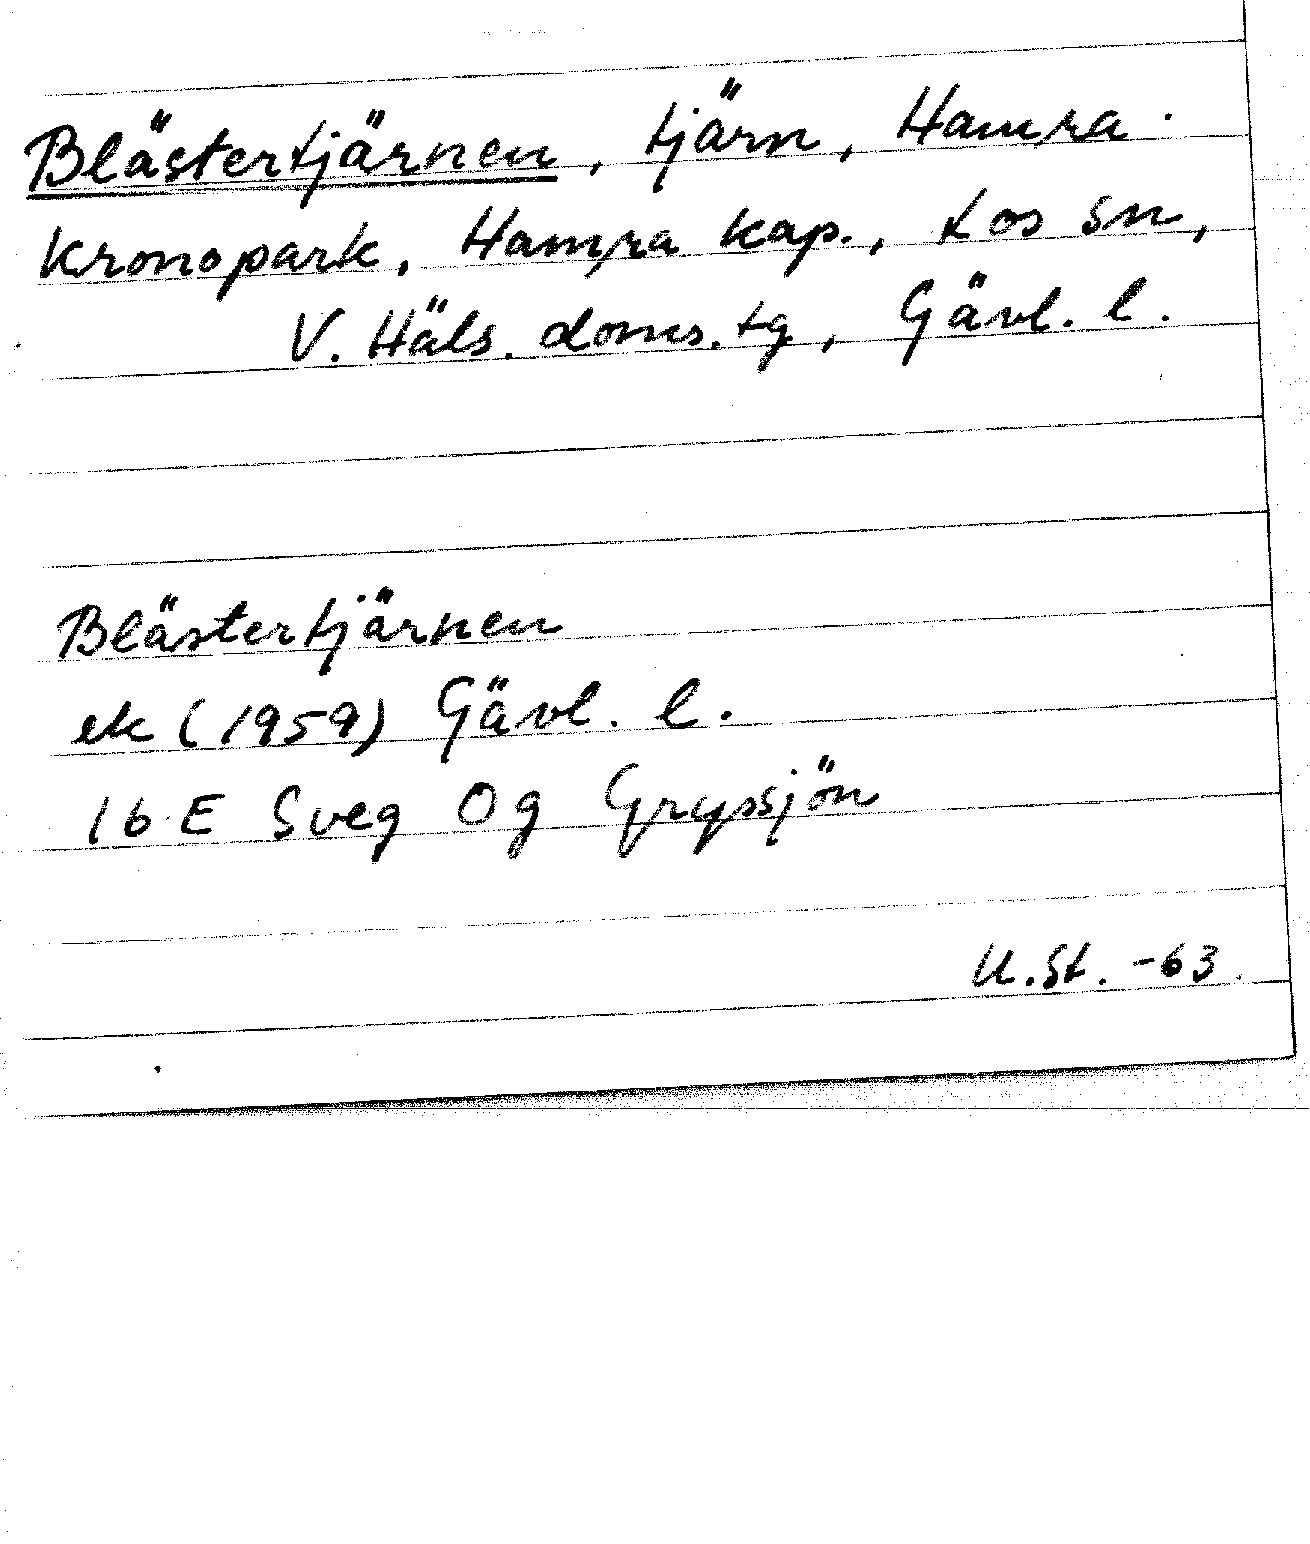 Blästertjärnen, tjärn, Hamra
kronopark, Hamra kap., Los sn,
V. Häls. doms. tg, Gävl. l.
Blästertjärnen
ek (1959) Gävl. l.
16 E Sveg 0g Gryssjön
U. St. -63.